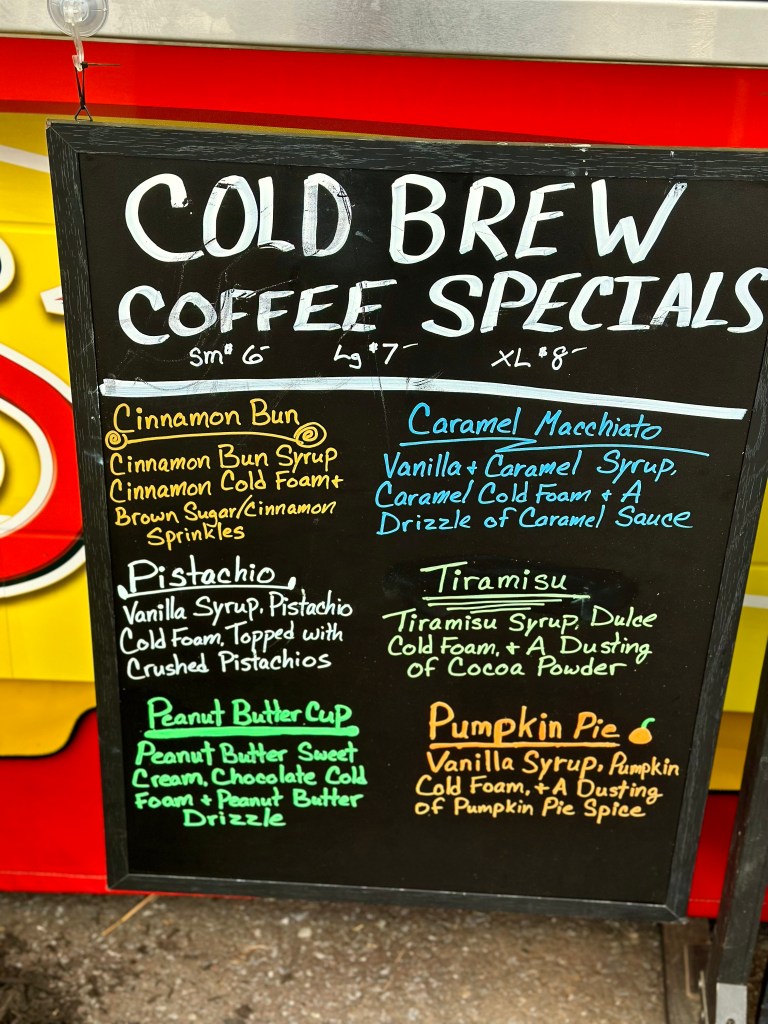 COLD BREW
COFFEE SPECIALS
Sm $6- Lg $7- XL $8-
Cinnamon Bun
Cinnamon Bun Syrup
Cinnamon Cold Foam +
Brown Sugar/Cinnamon
Sprinkles
Caramel Macchiato
Vanilla + Caramel Syrup,
Caramel Cold Foam + A
Drizzle of Caramel Sauce
Pistachio
Vanilla Syrup, Pistachio
Cold Foam, Topped with
Crushed Pistachios
Tiramisu
Tiramisu Syrup, Dulce
Cold Foam, + A Dusting
of Cocoa Powder
Peanut Butter Cup
Peanut Butter Sweet
Cream, Chocolate Cold
Foam + Peanut Butter
Drizzle
Pumpkin Pie
Vanilla Syrup, Pumpkin
Cold Foam, + A Dusting
of Pumpkin Pie Spice